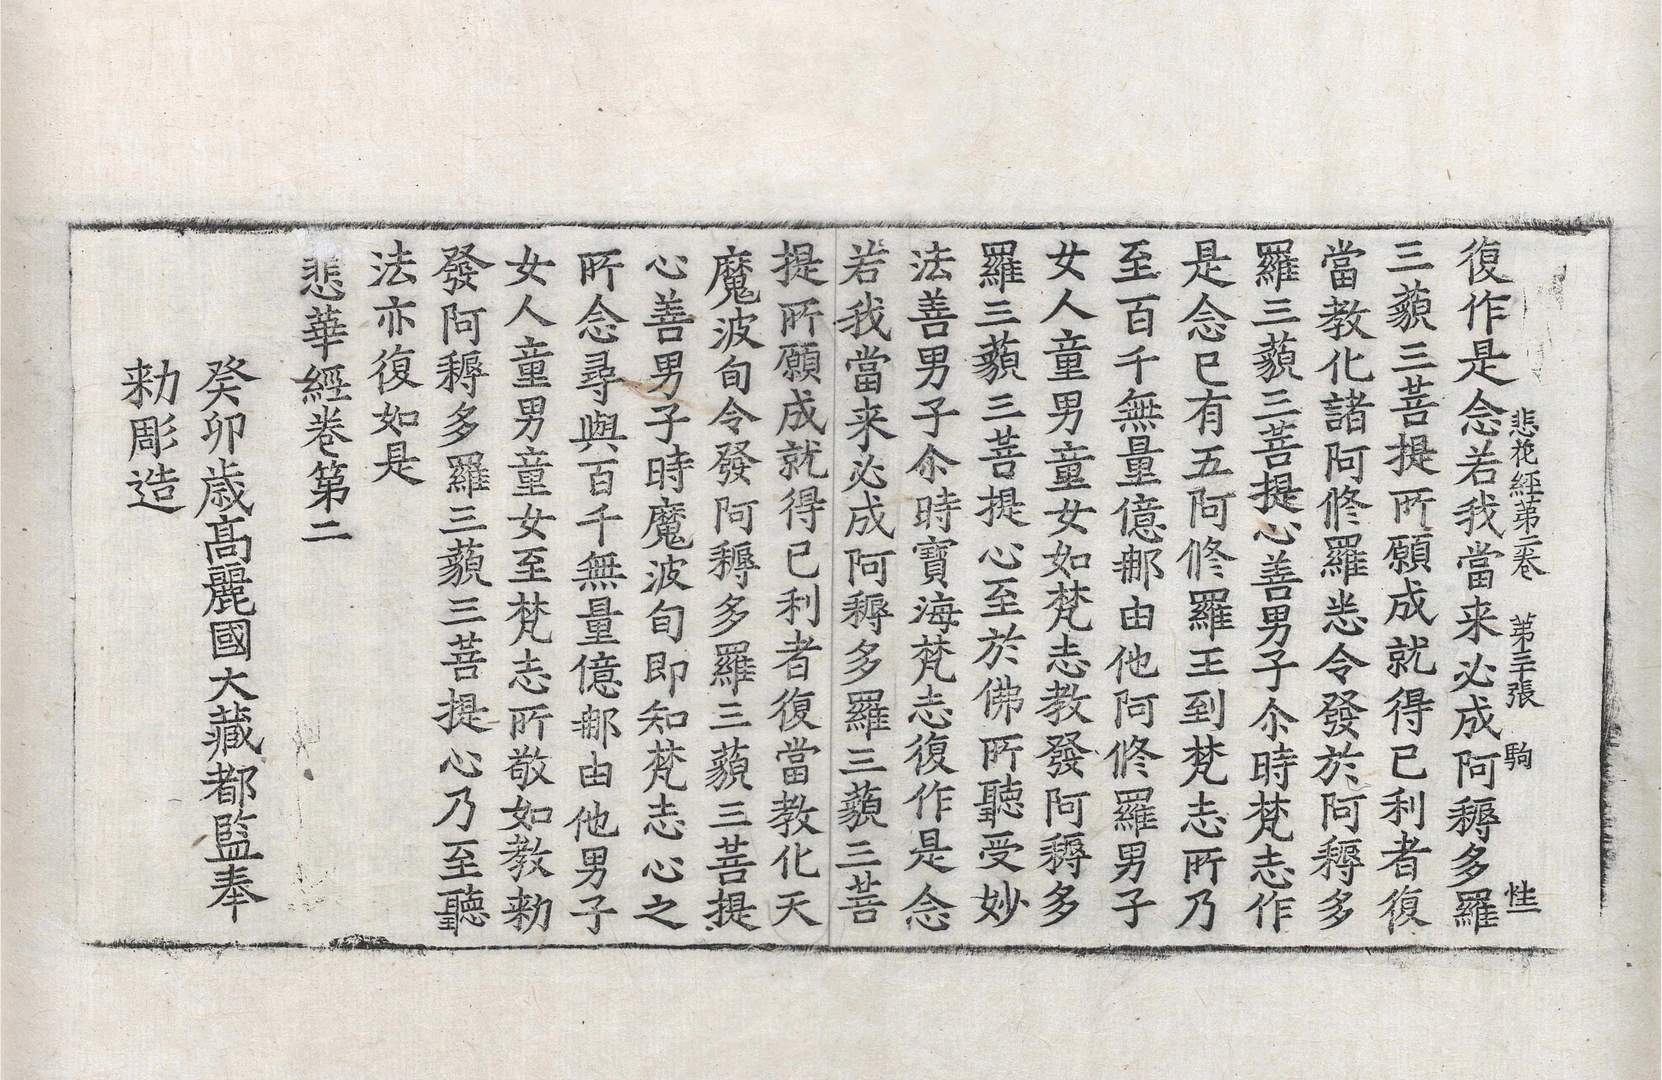 悲花經第二卷 第三十張 駒 性一
復作是念若我當来必成阿耨多羅
三藐三菩提所願成就得已利者復
當教化諸阿脩羅悉令發於阿耨多
羅三藐三菩提心善男子尒時梵志作
是念已有五阿脩羅王到梵志所乃
至百千無量億那由他阿脩羅男子
女人童男童女如梵志教發阿耨多
羅三藐三菩提心至於佛所聽受妙
法善男子尒時寶海梵志復作是念
若我當来必成阿耨多羅三藐三菩
提所願成就得已利者復當教化天
魔波旬令發阿耨多羅三藐三菩提
心善男子時魔波旬即知梵志心之
所念尋與百千無量億那由他男子
女人童男童女至梵志所敬如教勑
發阿耨多羅三藐三菩提心乃至聽
法亦復如是
悲華經卷第二
癸卯歳高麗國大藏都監奉
勑彫造